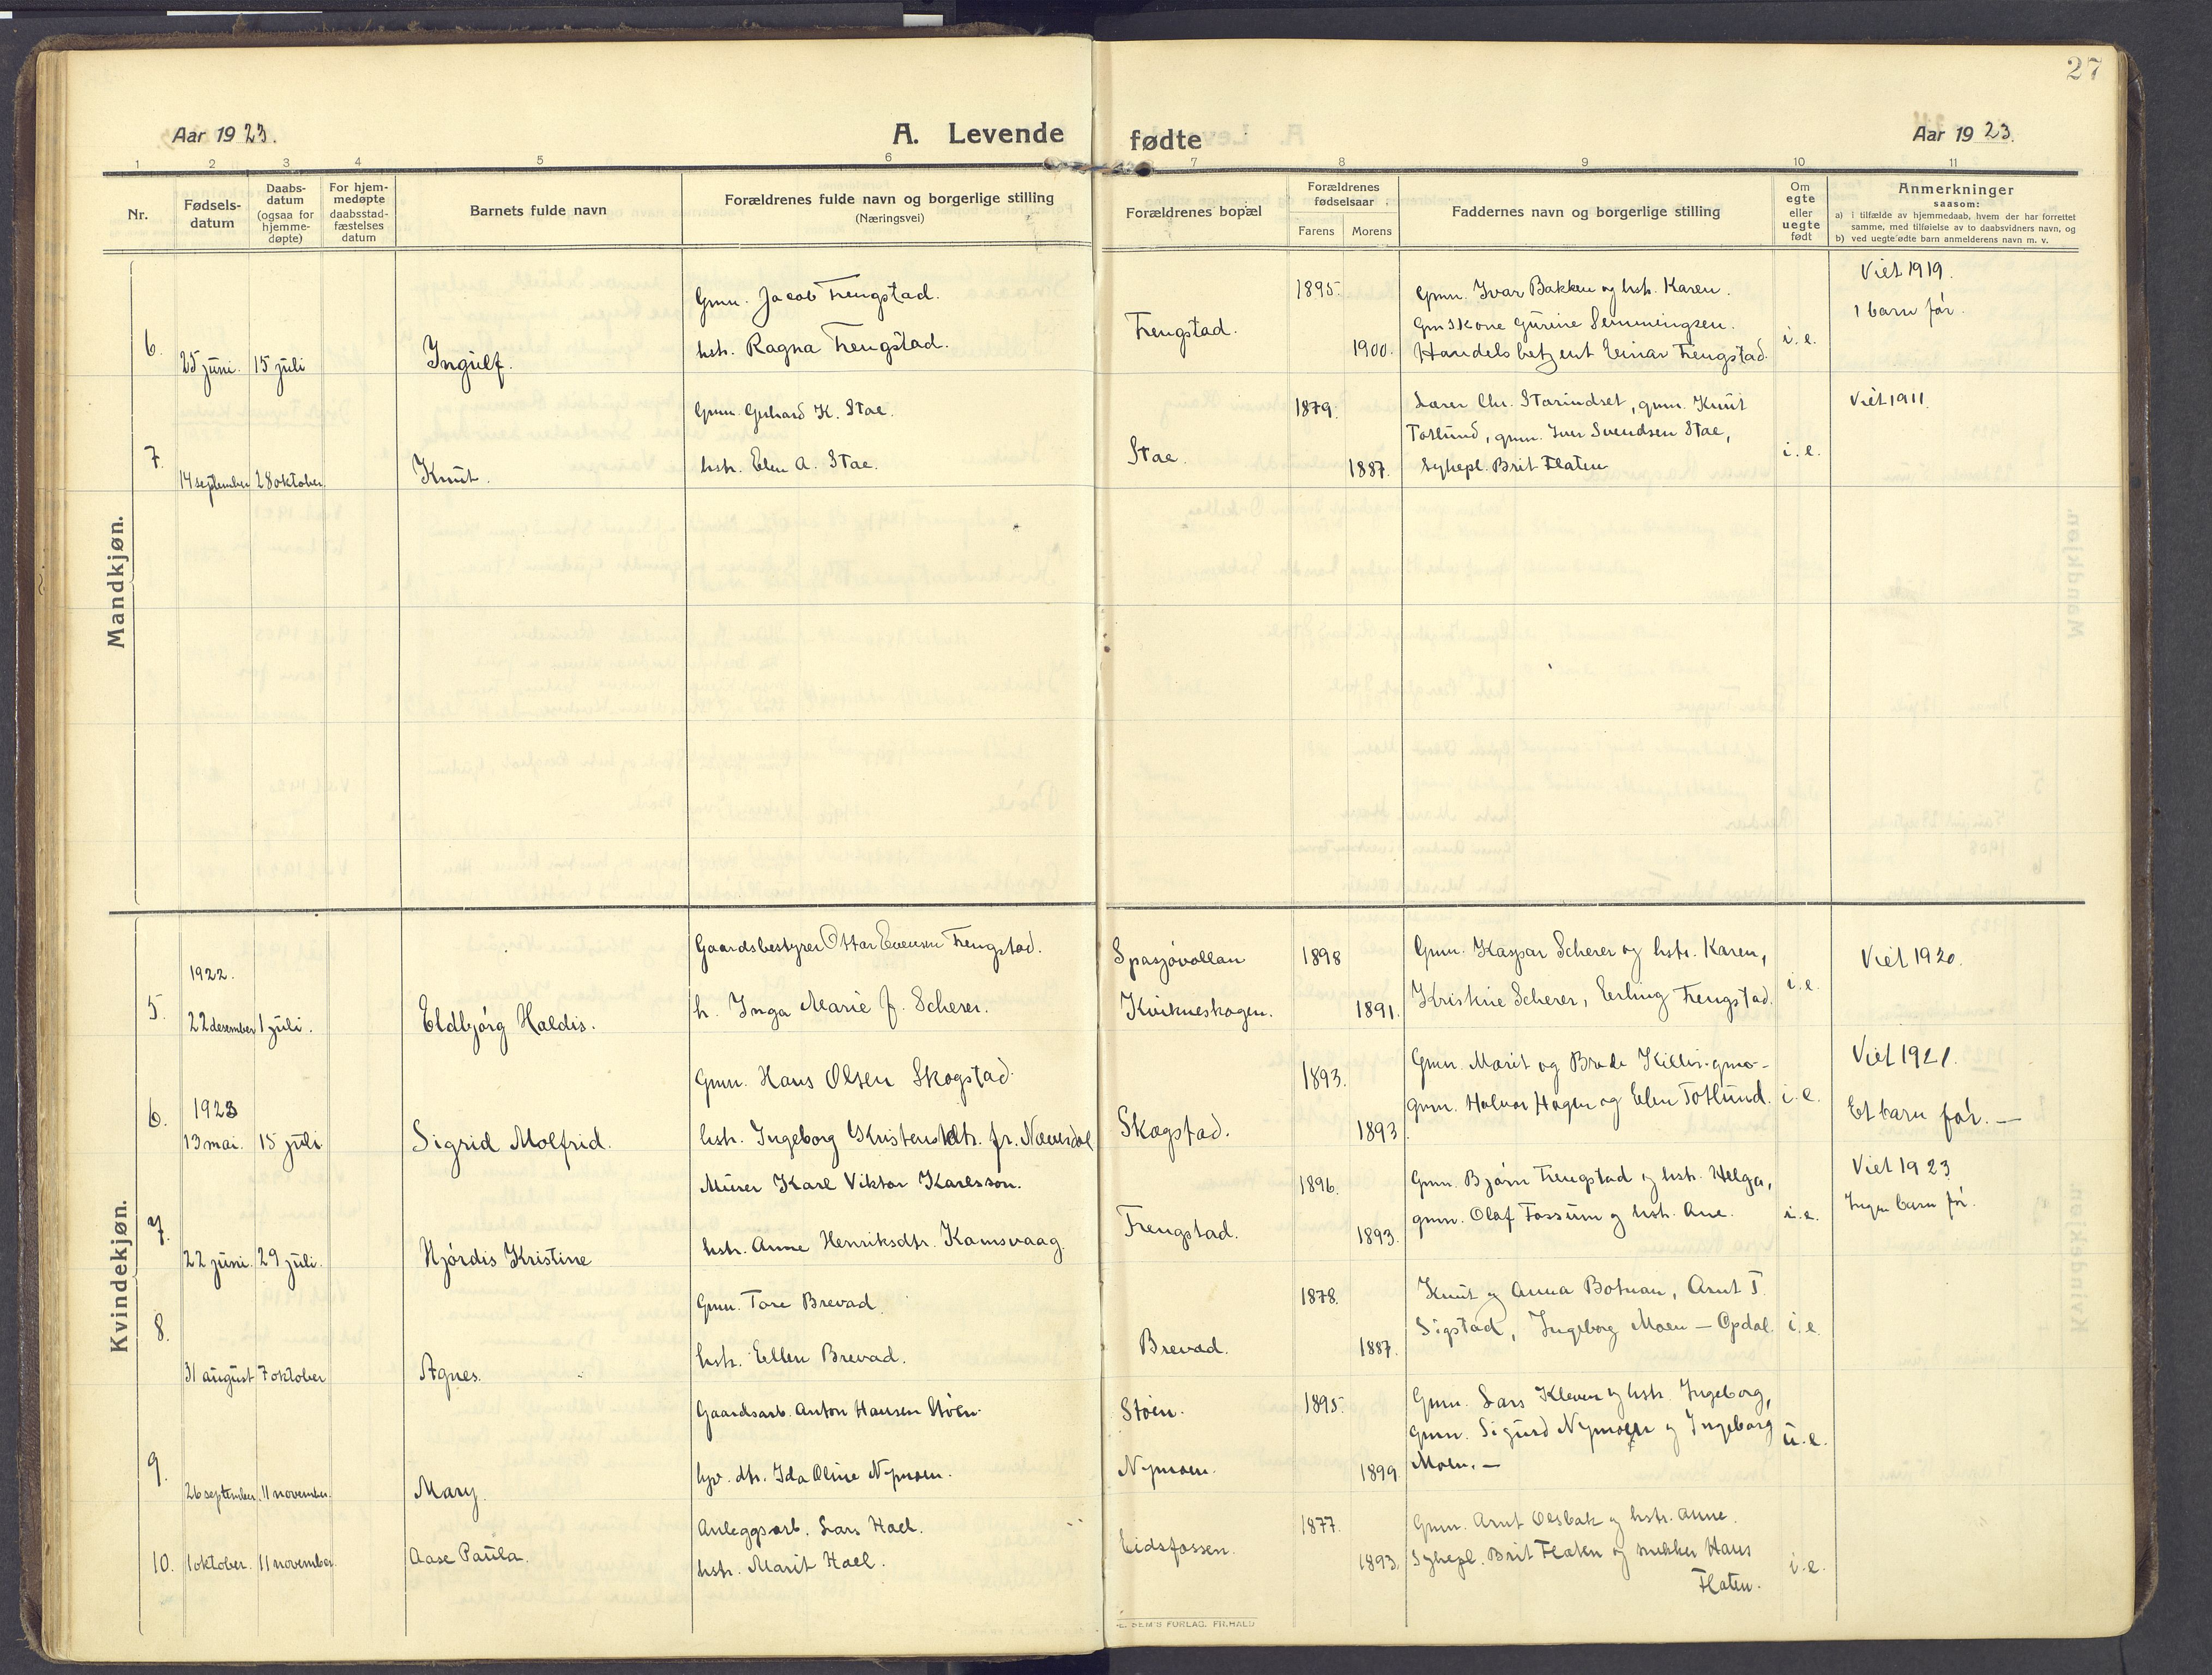 27
Aar 1923.
A. Levende fødte
Aar 1923.
1 2 3 4 5 6 7 8 9 10 11
Nr.
Fødsels-
datum
Daabs-
datum
(ogsaa for
hjemme-
døpte)
For hjem-
medøpte
daabsstad-
fæstelses
datum
Barnets fulde navn
Forældrenes fulde navn og borgerlige stilling
(Næringsvei)
Forældrenes bopæl
Forældrenes
fødselsaar
Farens
Morens
Faddernes navn og borgerlige stilling
Om
egte
eller
uegte
født
Anmerkninger
saasom:
a) i tilfælde av hjemmedaab, hvem der har forrettet
samme, med tilføielse av to daabsvidners navn, og
b) ved uegte fødte barn anmelderens navn m. v.
Mandkjøn.
6.
25 juni.
15 juli
Ingulf.
Gmn. Jacob Frengstad.
hstr. Ragna Frengstad.
Frengstad.
1895.
1900.
Gmn. Ivar Bakken og hstr. Karen.
Gmskone Gurine Semmingsen.
Handelsbetjent Einar Frengstad.
i. e.
Viet 1919.
1 barn før.
7.
14 september
28 oktober.
Knut.
Gmn. Gerhard K. Stae.
hstr. Elen A. Stae.
Stae.
1879.
1887.
Lærer Chr. Starindset, gmn. Knut
Totlund, gmn. Iver Svendsen Stae,
Sykepl. Brit Flaten
i. e.
Viet 1911.
Kvindekjøn.
5.
1922.
22 desember
1 juli.
Eldbjørg Haldis.
Gaardsbestyrer Ottar Evensen Frengstad.
h. Inga Marie f. Scherer.
Spasjøvollan
Kvikneskogen.
1898
1891.
Gmn. Kaspar Scherer og hstr. Karen,
Kristine Scherer, Erling Frengstad.
i. e.
Viet 1920.
6.
1923
13 mai.
15 juli
Sigrid Molfrid.
Gmn. Hans Olsen Skogstad.
hstr. Ingeborg Kristensdtr. fr. Næverdal
Skogstad.
1893.
1893.
Gmn. Marit og Brede
gmn. Halvor Hagen og Elen Totlund.
i. e.
Viet 1921.
Et barn før. —
7.
22 juni.
29 juli.
Hjørdis Kristine
Murer Karl Viktor Karlsson.
hstr. Anne Henriksdtr. Kamsvaag.
Frengstad.
1896.
1893.
Gmn. Bjørn Frengstad og hstr. Helga,
gmn. Olaf Fossum og hstr. Ane.
i. e.
Viet 1923
Ingen barn før.
8.
31 august
7 oktober
Agnes.
Gmn. Tore Brevad.
hstr. Ellen Brevad.
Brevad.
1878.
1887.
Knut og Anna Botnan, Arnt T.
Sigstad, Ingeborg Moen — Opdal.
i. e.
9.
26 september.
11 november.
Mary.
Gaardsarb. Anton Hansen Støen.
hjv. dtr. Ida Oline Nymoen.
Støen.
Nymoen.
1895.
1899.
Gmn. Lars Kleven og hstr. Ingeborg,
gmn. Sigurd Nymoen og Ingeborg
Moen. —
u. e.
10.
1 oktober.
11 november.
Aase Paula.
Anleggsarb. Lars Hoel.
hstr. Marit Hoel.
Eidsfossen.
1877.
1893.
Gmn. Arnt Olsbak og hstr. Anne.
Sykepl. Brit Flaten og snekker Hans
Flaten.
i. e.
SEM'S FORLAG. FR.HALD